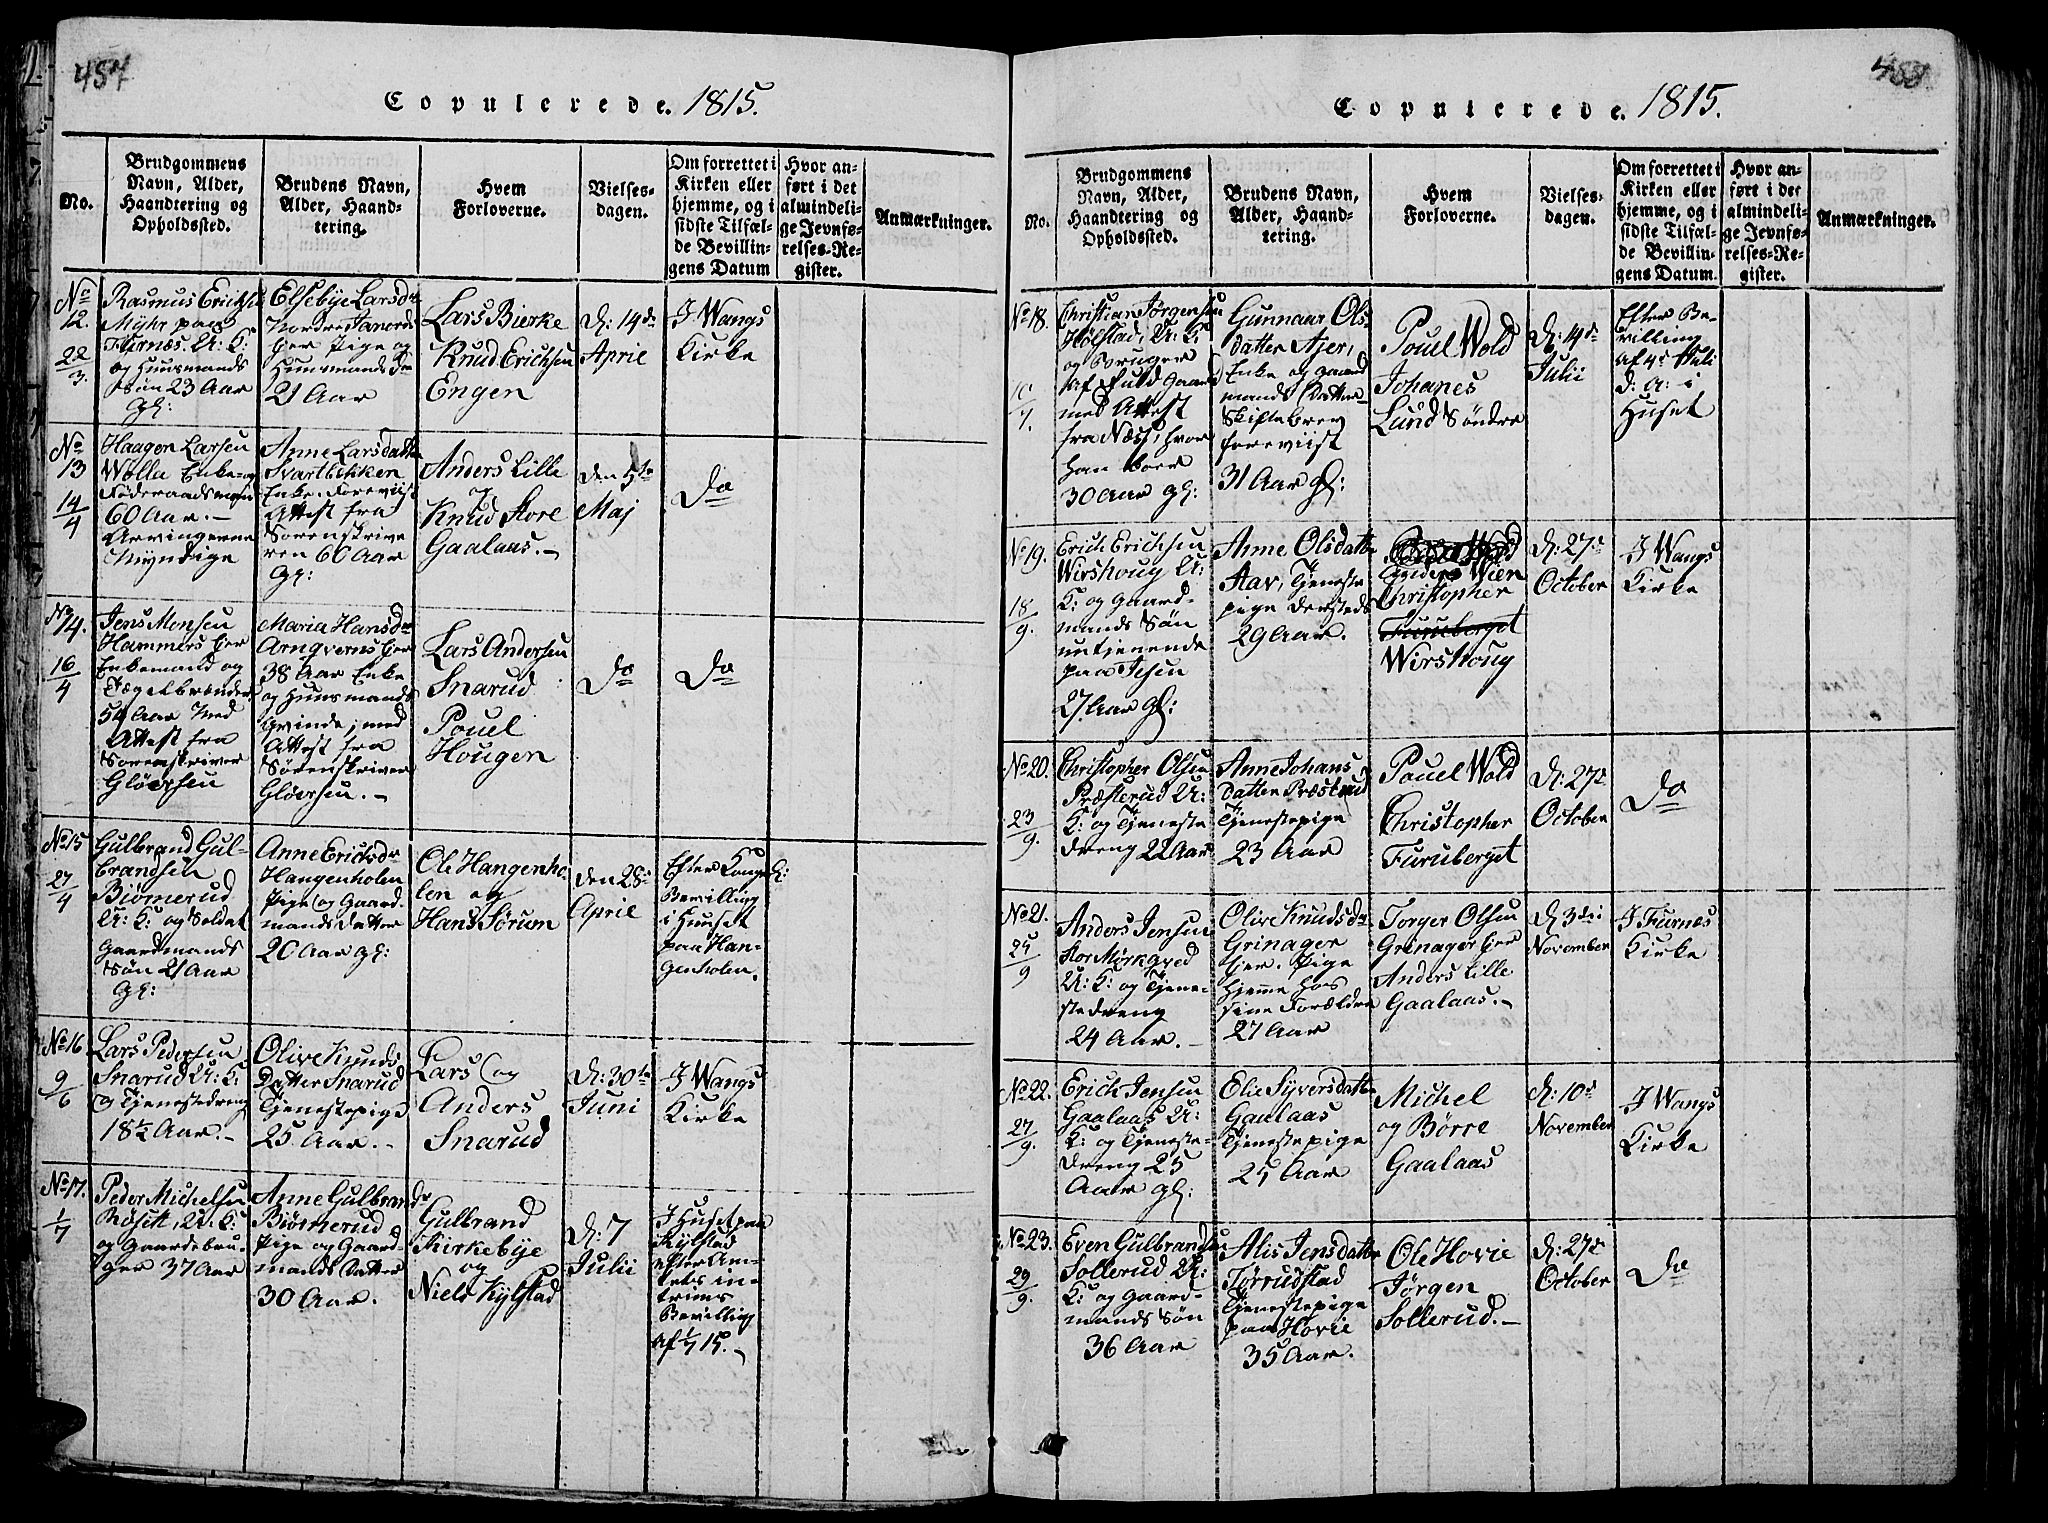 484
Copulerede. 1815.
No.
Brudgommens
Navn, Alder,
Haandtering og
Opholdssted.
Brudens Navn,
Alder, Haand-
tering.
Hvem
Forloverne.
Vielses-
dagen.
Om forrettet i
Kirken eller
hjemme, og i
sidste Tilfæl-
de Bevillin-
gens Datum
Hvor an-
ført i det
almindeli-
ge Jevnfø-
relses-Re-
gister.
Anmærkninger.
No 12.
22/3.
Rasmus Erichsen
Myhr paa
Furnæs. U: K:
og Huusmands
Søn 23 Aar
gl:
Elsebye Larsdr
Nordre
Pige og
Huusmands Dr
21 Aar
Lars Bierke
Knud Erichsen
Engen
D: 14de
April
I Wangs
Kirke
No 13
14/4
Haagen Larsen
Wolla Enke- og
Føderaadsmand
60 Aar. -
Arvingerne
Myndige
Anne Larsdatter
Svartbekken
Enke. Foreviist
Attest fra
Sorenskrive
ren 60 Aar
gl:
Anders Lille
og
Knud Store
Gaalaas. -
den 5te
Maj
Do
No 14.
16/4
Jens Monsen
Hammers Eier
Enkemand og
Tegelbrænder
54 Aar Med
Attest fra
Sorenskriver
Gløersen
Maria Hansdr
Arnqverns Eier
38 Aar Enke
og Huusmands
Qvinde, med
Attest fra
Sorenskriver
Gløersen. -
Lars Andersen
Snarud
Pouel
Hougen
Do
Do
No 15
27/4
Gulbrand Gul-
brandsen
Biørnerud
U: K: og Soldat
Gaardmands
Søn 21 Aar
gl:
Anne Erichsdr
Hangenholen
Pige og Gaard-
mands Datter
20 Aar gl:
Ole Hangenho-
len og
Hans Sørum
den 28de
April
Efter Konge
Bevilling
i Huuset
paa Han-
genholen.
No 16
9/6
Lars Pedersen
Snarud U: K:
og Tjenestedreng
18½ Aar. -
Olive Knuds
Datter Snarud
Tjenestepige
25 Aar. -
Lars og
Anders
Snarud
D: 30te
Juni
I Wangs
Kirke
No 17.
1/7
Peder Michelsen
Røsett, U: K:
og Gaardebru-
ger 37 Aar
Anne Gulbrandsdr
Biørnerud
Pige og Gaard-
mands Datter
30 Aar.
Gulbrand
Kirkebye
og
Niels Kylstad
D: 7
Julii
I Huset paa
Kylstad
efter Am-
tets in-
trims
Bevilling
af 1/7 15. -
Copulerede. 1815.
No.
Brudgommens
Navn, Alder,
Haandtering og
Opholdssted.
Brudens Navn,
Alder, Haand-
tering.
Hvem
Forloverne.
Vielses-
dagen.
Om forrettet i
Kirken eller
hjemme, og i
sidste Tilfæl-
de Bevillin-
gens Datum.
Hvor an-
ført i det
almindeli-
ge Jevnfø-
relses-Re-
gister.
Anmærkninger.
No 18.
Christian Jørgensen
Hølstad, U: K:
og Bruger
af Huld Gaard
med Attest
fra Næss, hvor
han boer
30 Aar gl:
Gunnaar Ols-
datter Ajer,
Enke og Gaard
mands Datter
Skiftebrev
foreviist
31 Aar gl:
Pouel Wold
Johanes
Lund Søndre
D: 14de
Julii
Efter Be-
villing
af 4de Juli
d: A: i
Huset
No 19.
18/9.
Erich Erichsen
Wirshoug U:
K: og Gaard-
mands Søn
nutienende
paa Jesen
27. Aar gl:
Anne Olsdatter
Aar, Tjeneste
pige dersteds
29 Aar.
Anders Wien
Christopher
Furuberget
Wirshoug
D: 27de
October
I Wangs
Kirke
No 20.
23/9.
Christopher Olsen
Præsterud U:
K: og Tjeneste
dreng 22 Aar
Anne Johans
datter Præsterud
Tjenestepige
23 Aar
Pouel Wold
Christopher
Furuberget
D: 27de
October
Do
No 21.
25/9
Anders Jensen
Stor Mørkqved
U: K: og Tjene-
stedreng
24 Aar. -
Olive Knudsdr
Grinager
Eier. Pige
hjeme hos
sine Forældre
27 Aar
Torger Olsen
Grinager Eier
Anders Lille
Gaalaas. -
D 3die
November
I Furnes
Kirke
No 22.
27/9.
Erich Jensen
Gaalaas U:
K: og Tjeneste-
dreng 25
Aar gl:
Elie Syversdatter
Gaalaas
Tjenestepige
25 Aar
Michel
og Børre
Gaalaas
D: 10de
November
I Wangs
Kirke
No 23.
29/9.
Even Gulbrandsen
Sollerud U:
K: og Gaard-
mands Søn
36 Aar
Alis Jensdatter
Tørrudstad
Tjenestepige
paa Hovie
35 Aar.
Ole Hovie
Jørgen
Sollerud. -
D: 27de
October
Do